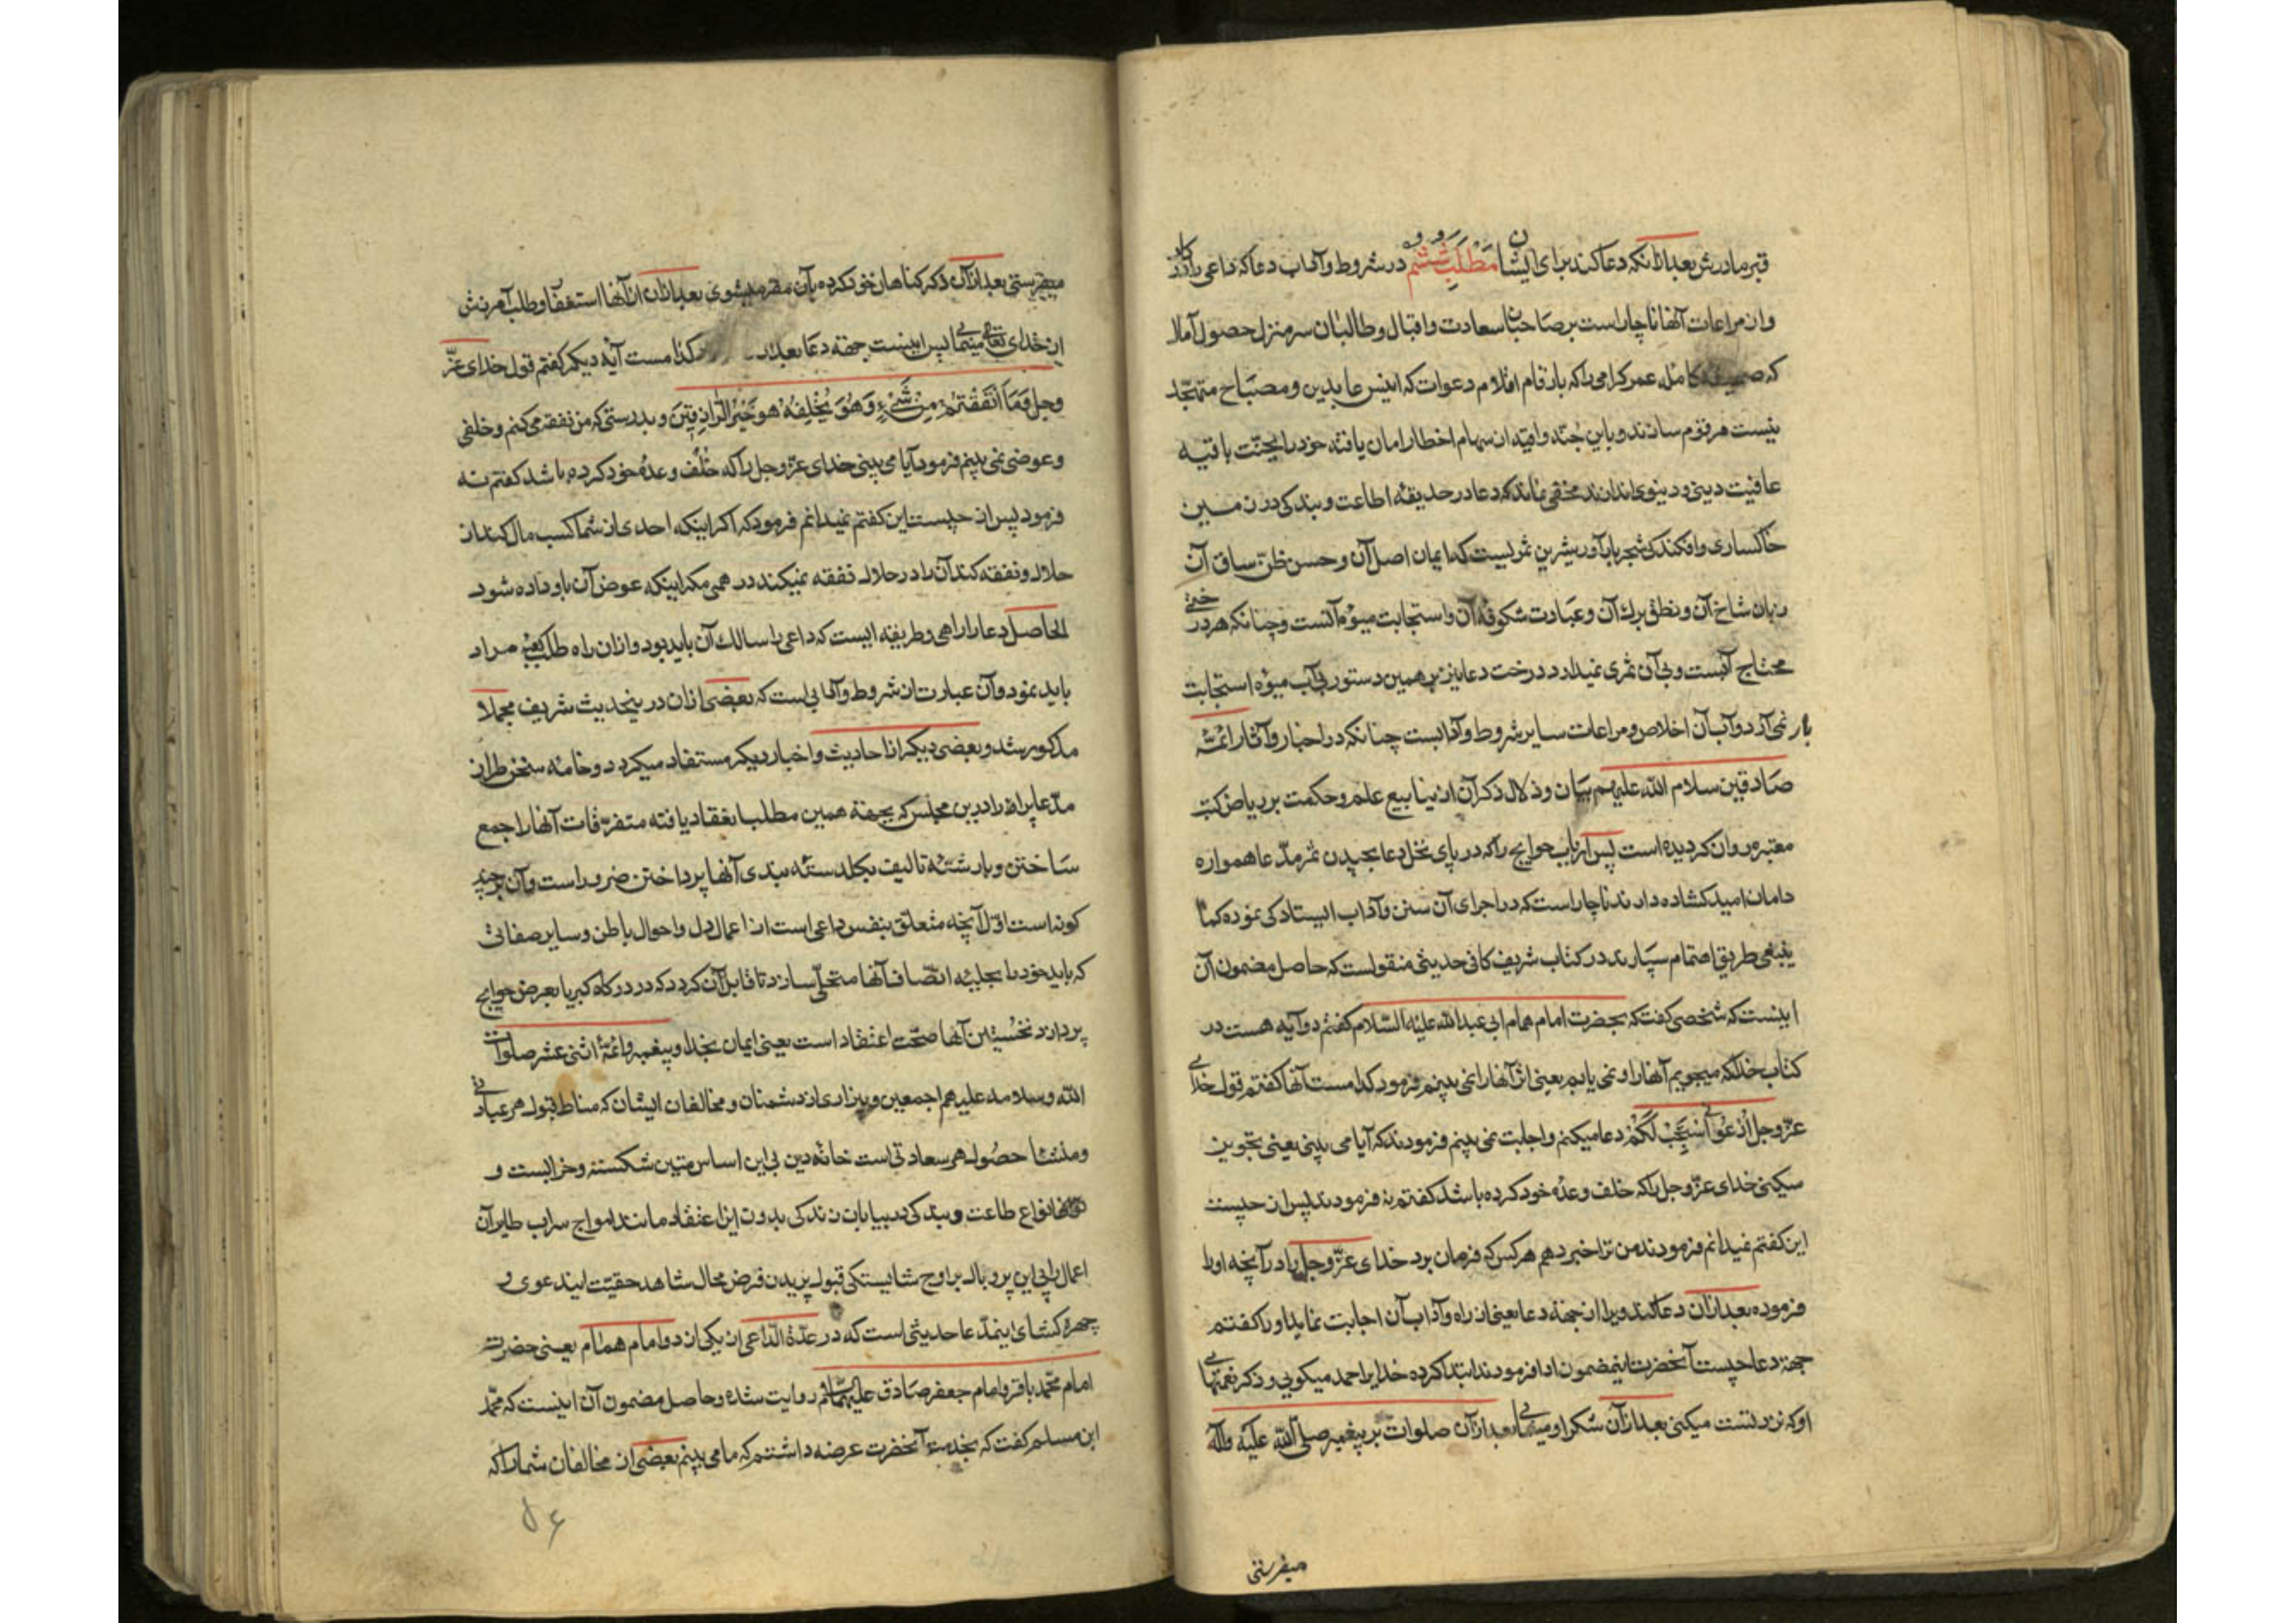 قبر مادرش بعد از آنکه دعا کند برای ایشان مطلب ششم در شروط و آداب دعا که داعی را در کار
و از مراعات آنها ناچار است بر صاحبان سعادت و اقبال و طالبان سرمنزل حصول آمال
که کامل عمر کرامی را که بارقام اقلام دعوات که انیس عابدین و مصباح متهجد
نیست مرقوم سازند و باین جنه واقیه از سهام اخطار امان یافته خود را بجنت باقیه
عافیت دینی و دینوی اندازند مخفی نماند که دعا در حدیقه اطاعت و بندکی در زمین
خاکساری و افکندکی شجر بارآور شیرین ثمریست که ایمان اصل آن و حسن ظن ساق آن
زبان شاخ آن و نطق برك آن و عبادت شکوفه آن و استجابت میوه آنست و چنانکه هر درختی
محتاج آبست و بی آن ثمری نمیدارد درخت دعا نیز بر همین دستور بی آب میوه استجابت
بار نمی آرد و آب آن اخلاص و مراعات سایر شروط و آدابست چنانکه در اخبار و آثار ائمه
صادقین سلام الله علیهم بیان و ذلال ذکر آن از ینابیع علم و حکمت بر ریاض کتب
معتبره روان کردیده است پس ارباب حوایج را که در پای نخل دعا بچیدن ثمر مدعا همواره
دامان امید کشاده دارند ناچار است که در اجرای آن سنن و آداب ایستادکی نموده کما
ینبغی طریق اهتمام سپارند در کتاب شریف کافی حدیثی منقولست که حاصل مضمون آن
اینست که شخصی کفت که بحضرت امام همام ابی عبد الله علیه السلام کفتم دو آیه هست در
کتاب خدا که میجویم آنها را و نمی یابم یعنی اثر آنها را نمی بینم فرمود کدامست آنها کفتم قول خدای
عز و جل ادعونی استجب لکم دعا میکنم و اجابت نمی بینم فرمودند که آیا می بینی یعنی تجویز
میکنی خدای عز و جل را که خلف وعده خود کرده باشد کفتم نه فرمودند پس از چیست
این کفتم نمیدانم فرمودند من ترا خبر دهم هر کس که فرمان برد خدای عز و جل را در آنچه او را
فرموده بعد از آن دعا کند ویرا از جهة دعا یعنی از راه و آداب آن اجابت نماید او را کفتم
جهة دعا چیست آنحضرت اینمضمون ادا فرمودند ابتدا کرده خدا را حمد میکویی و ذکر نعمتهای
او که نزد تست میکنی بعد از آن شکر او مینمایی بعد از آن صلوات بر پیغمبر صلی الله علیه وآله
میفرستی
میفرستی بعد از آن ذکر کناهان خود کرده بآن مقر میشوی بعد از آن از آنها استغفار و طلب آمرزش
از خدای تعالی مینمایی پس اینست جهة دعا بعد کدامست آیه دیکر کفتم قول خدای عز
وجل وما انفقتم من شیء وهو یخلفه هو خیر الرازقین و بدرستی که من نفقه می کنم و خلفی
و عوضی نمی بینم فرمود آیا می بینی خدای عز و جل را که خلف وعده خود کرده باشد کفتم نه
فرمود پس از چیست این کفتم نمیدانم فرمود که اکر اینکه احدی از شما کسب مال کند از
حلال و نفقه کند آن را در حلال نفقه نمیکند درهمی مکر اینکه عوض آن باو داده شود
الحاصل دعا را راهی و طریقه ایست که داعی را سالك آن باید بود و از آن راه طلب کعبه مراد
باید نمود و آن عبارت از شروط و آدابی است که بعضی از آن در ینحدیث شریف مجملا
مذکور شد و بعضی دیکر از احادیث و اخبار دیکر مستفاد میکردد و خامه سخن طراز
مدعا پرا را درین مجلس که بجهة همین مطلب انعقاد یافته متفرقات آنها را جمع
ساختن و بار شته تالیف بکلدسته بندی آنها پرداختن ضرور است و آن بر چند
کونه است اول آنچه متعلق بنفس داعی است از اعمال دل و احوال باطن و سایر صفاتی
که باید خود را بحلیه اتصاف آنها متحلی سازد تا قابل آن کردد که در درکاه کبریا بعرض حوایج
پردازد نخستین آنها صحت اعتقاد است یعنی ایمان بخدا و پیغمبر و ائمه اثنی عشر صلوات
الله وسلامه علیهم اجمعین و بیزاری از دشمنان و مخالفان ایشان که مناط قبول هر عبادتی
و منشا حصول هر سعادتی است خانه دین بی این اساس متین شکسته و خرابست و
انواع طاعت و بندکی در بیابان زندکی بدون این اعتقاد مانند امواج سراب طایران
اعمال را بی این پر و بال بر اوج شایستکی قبول پریدن فرض محال شاهد حقیت ایندعوی و
چهره کشای اینمدعا حدیثی است که در عدة الداعی از یکی از دو امام همام یعنی حضرت
امام محمد باقر و امام جعفر صادق علیهما السلام روایت شده و حاصل مضمون آن اینست که محمد
ابن مسلم کفت که بخدمت آنحضرت عرضه داشتم که ما می بینم بعضی از مخالفان شما را که